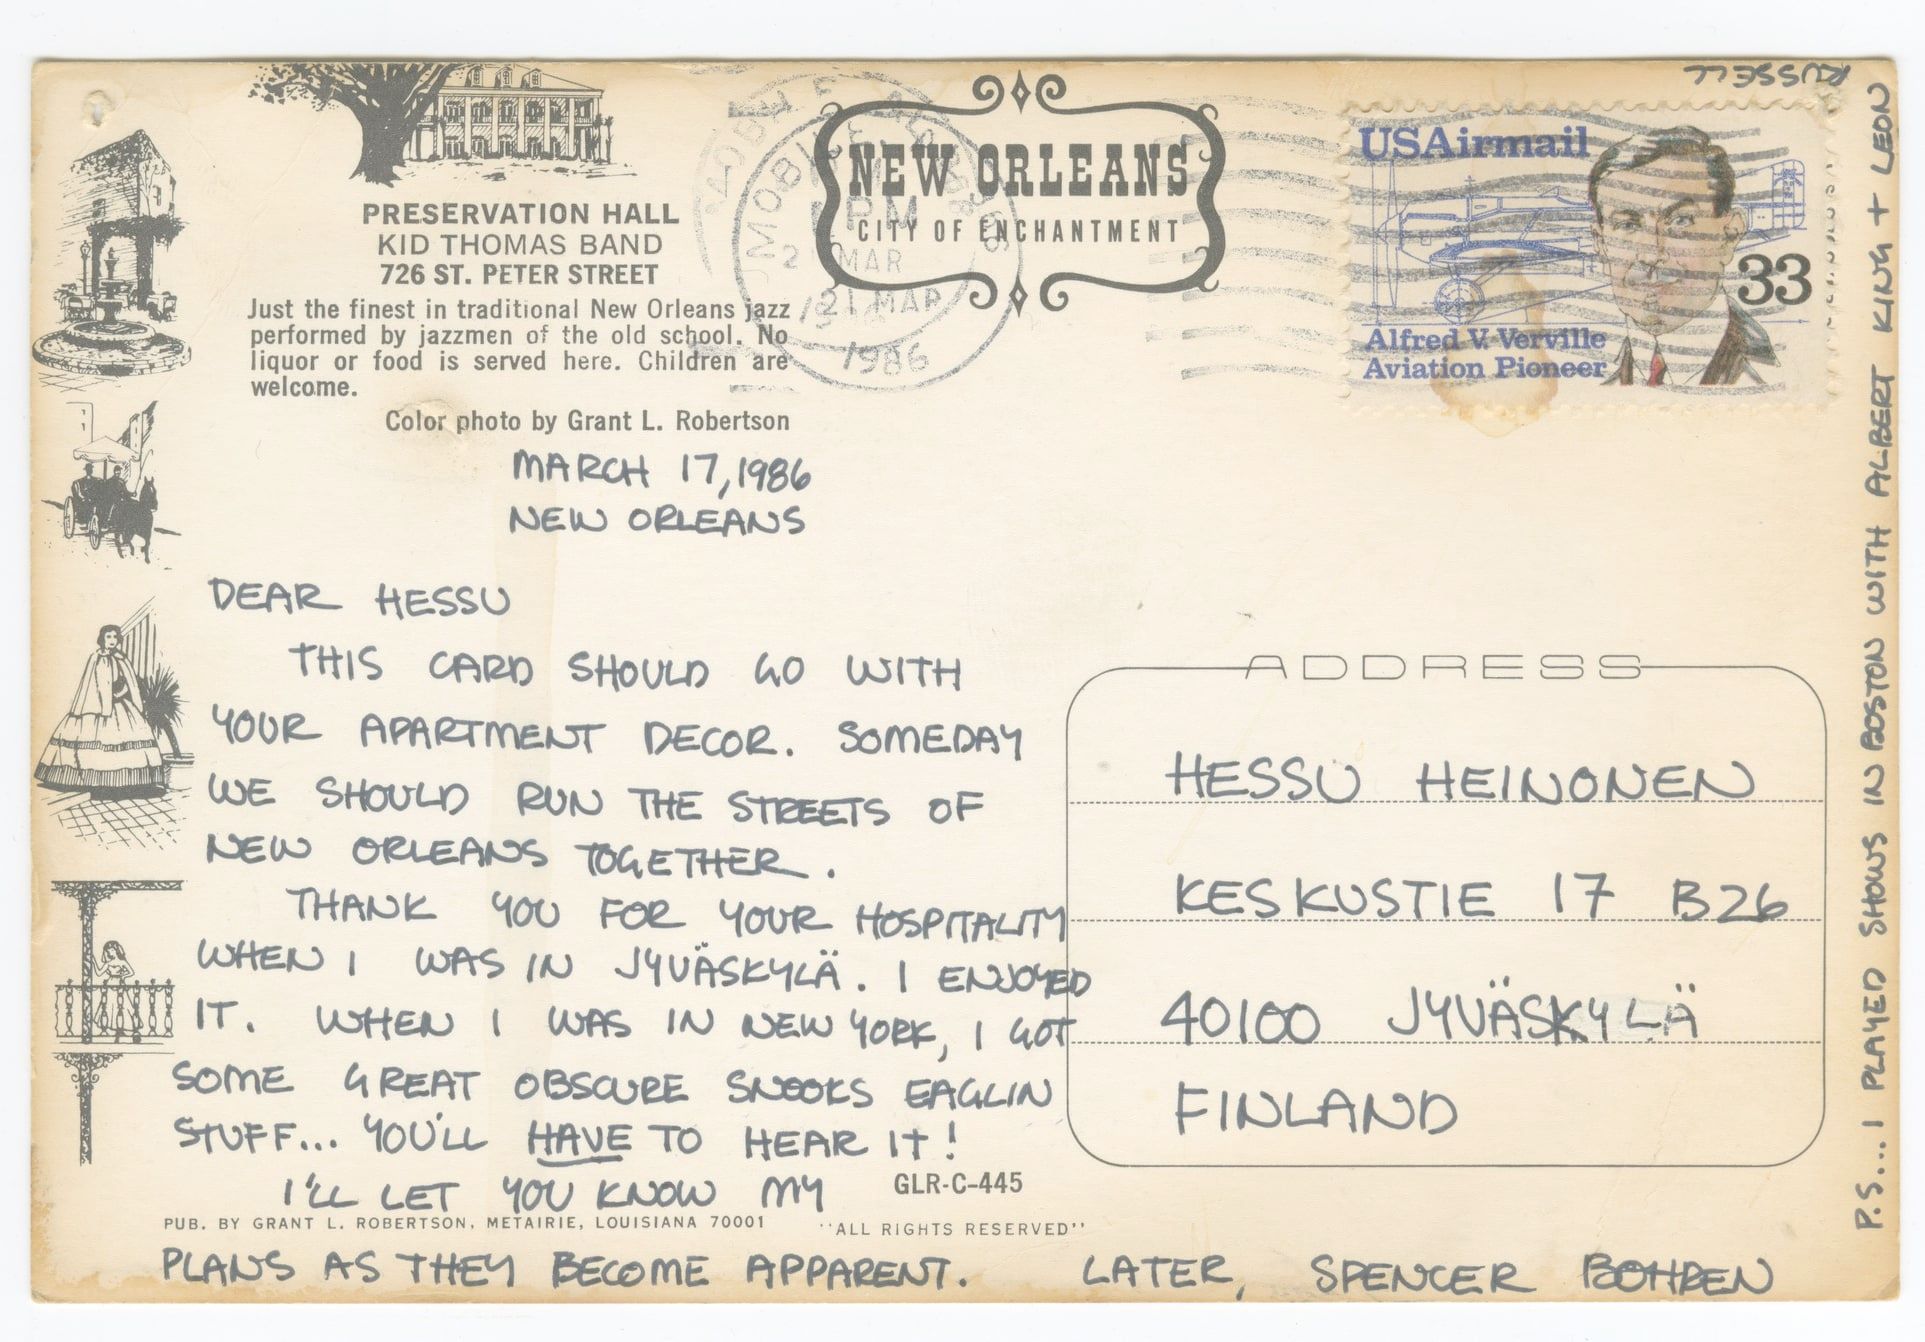 PRESERVATION HALL
KID THOMAS BAND
726 ST. PETER STREET
Just the finest in traditional New Orleans jazz
performed by jazzmen of the old school. No
liquor or food is served here. Children are
welcome.
Color photo by Grant L. Robertson
NEW ORLEANS
CITY OF ENCHANTMENT
PM
MAR
21 MAR
1986
USAirmail
33
Alfred V. Verville
Aviation Pioneer
MARCH 17, 1986
NEW ORLEANS
DEAR HESSU
THIS CARD SHOULD GO WITH
YOUR APARTMENT DECOR. SOMEDAY
WE SHOULD RUN THE STREETS OF
NEW ORLEANS TOGETHER.
THANK YOU FOR YOUR HOSPITALITY
WHEN I WAS IN JYVÄSKYLÄ. I ENJOYED
IT. WHEN I WAS IN NEW YORK, I GOT
SOME GREAT OBSCURE SNOOKS EAGLIN
STUFF... YOU'LL HAVE TO HEAR IT!
I'LL LET YOU KNOW MY
GLR-C-445
PUB. BY GRANT L. ROBERTSON, METAIRIE, LOUISIANA 70001 "ALL RIGHTS RESERVED"
PLANS AS THEY BECOME APPARENT. LATER, SPENCER BOHREN
ADDRESS
HESSU HEINONEN
KESKUSTIE 17 B26
40100 JYVÄSKYLÄ
FINLAND
P.S... I PLAYED SHOWS IN BOSTON WITH ALBERT KING + LEON
RUSSELL